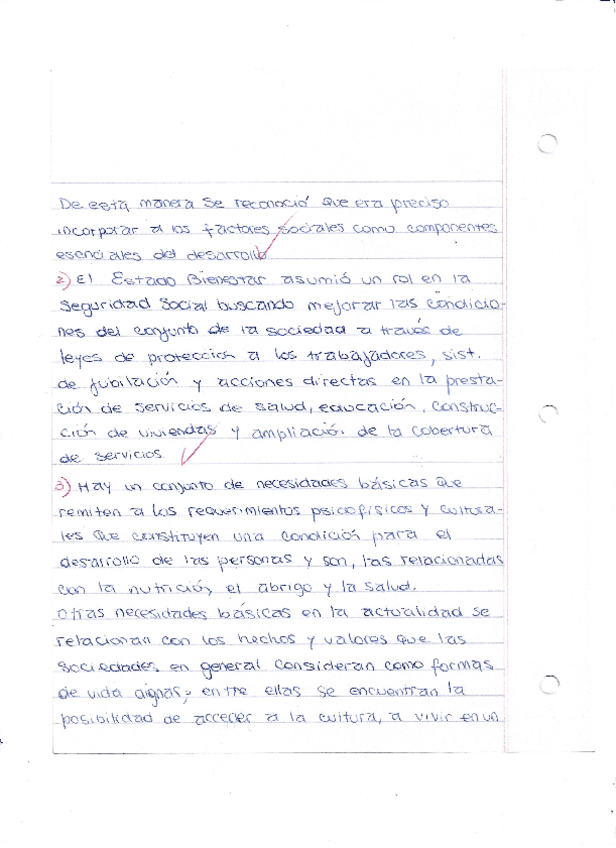 De esta manera se reconoció que era preciso
incorporar a los factores sociales como componentes
esenciales del desarrollo.
2) El Estado Bienestar asumió un rol en la
Seguridad Social buscando mejorar las condicio-
nes del conjunto de la sociedad a través de
leyes de protección a los trabajadores, sist.
de jubilación y acciones directas en la presta-
ción de servicios de salud, educación, construc-
cción de viviendas y ampliación de la cobertura
de servicios.
3) Hay un conjunto de necesidades básicas que
remiten a los requerimientos psicofísicos y cultura-
les que constituyen una condición para el
desarrollo de las personas y son, las relacionadas
con la nutrición, el abrigo y la salud.
Otras necesidades básicas en la actualidad se
relacionan con los hechos y valores que las
sociedades en general consideran como formas
de vida dignas; entre ellas se encuentran la
posibilidad de acceder a la cultura, a vivir en un